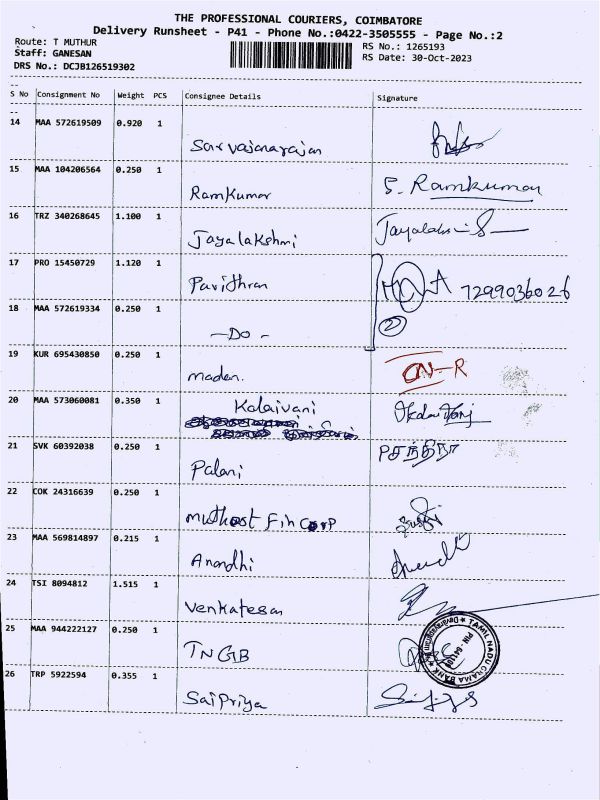 THE PROFESSIONAL COURIERS, COIMBATORE
Delivery Runsheet - P41 - Phone No.:0422-3505555 - Page No.:2
Route: T MUTHUR
Staff: GANESAN
DRS No.: DCJB126519302
RS No.: 1265193
RS Date: 30-Oct-2023
S No Consignment No Weight PCS Consignee Details Signature
14 MAA 572619509 0.920 1 Sarvajanarajan
15 MAA 104206564 0.250 1 Ramkumar S. Ramkumar
16 TRZ 340268645 1.100 1 Jayalakshmi
17 PRO 15450729 1.120 1 Pavithran 7299036026
18 MAA 572619334 0.250 1 -Do- 2
19 KUR 695430850 0.250 1 madan. CN-R
20 MAA 573060081 0.350 1 Kalaivani
21 SVK 60392038 0.250 1 Palani P சந்திரா
22 COK 24316639 0.250 1 muthoot Fin Corp
23 MAA 569814897 0.215 1 Anandhi
24 TSI 8094812 1.515 1 Venkatesan
25 MAA 944222127 0.250 1 TNGB TAMIL NADU GRAMA BANK
26 TRP 5922594 0.355 1 Saipriya